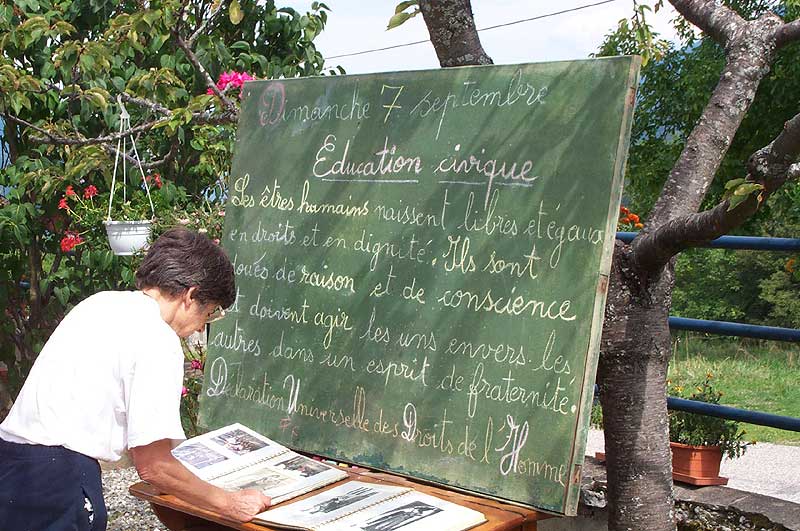 Dimanche 7 septembre
Éducation civique
Les êtres humains naissent libres et égaux
en droits et en dignité. Ils sont
doués de raison et de conscience
et doivent agir les uns envers les
autres dans un esprit de fraternité.
Déclaration Universelle des Droits de l'Homme